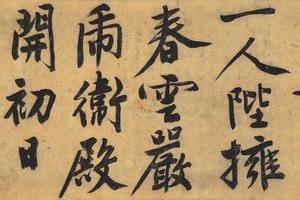 一人陛擁
春雲嚴
衛殿
開初日